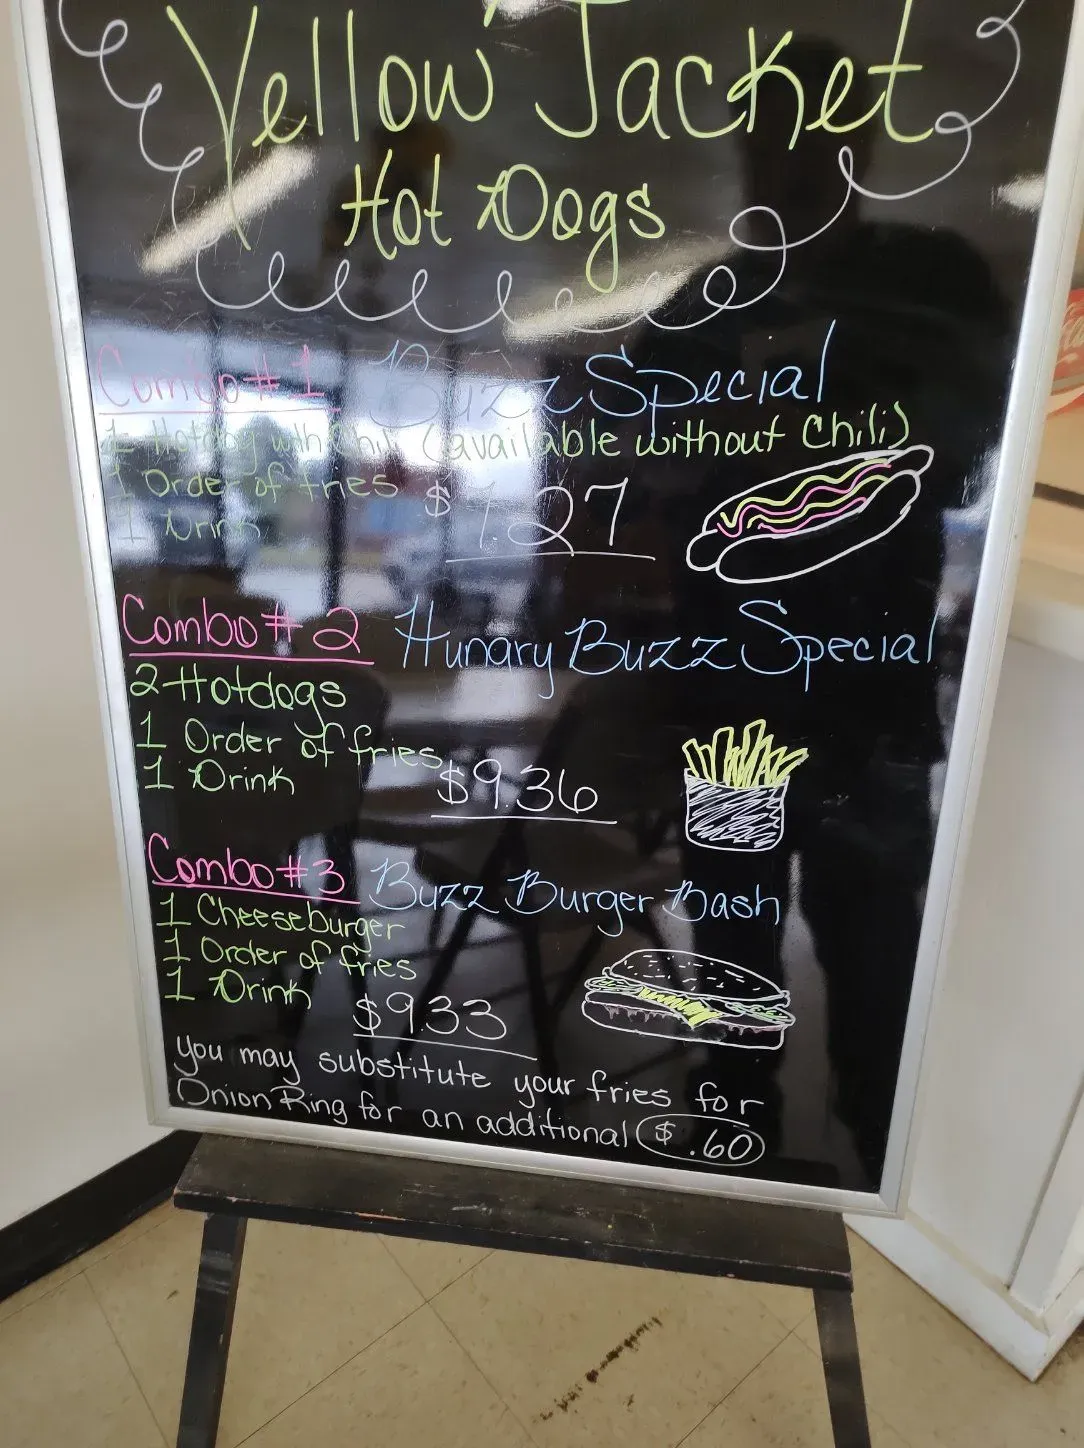 Yellow Jacket
Hot Dogs
Combo # 1 Buzz Special
1 Hotdog with Chili (available without Chili)
1 Order of fries
1 Drink
$
.27
Combo # 2 Hunary Buzz Special
2 Hotdogs
1 Order of fries
1 Drink
$9.36
Combo #3 Buzz Burger Bash
1 Cheeseburger
1 Order of fries
1 Drink
$9.33
you may substitute your fries for
Onion Ring for an additional $ .60